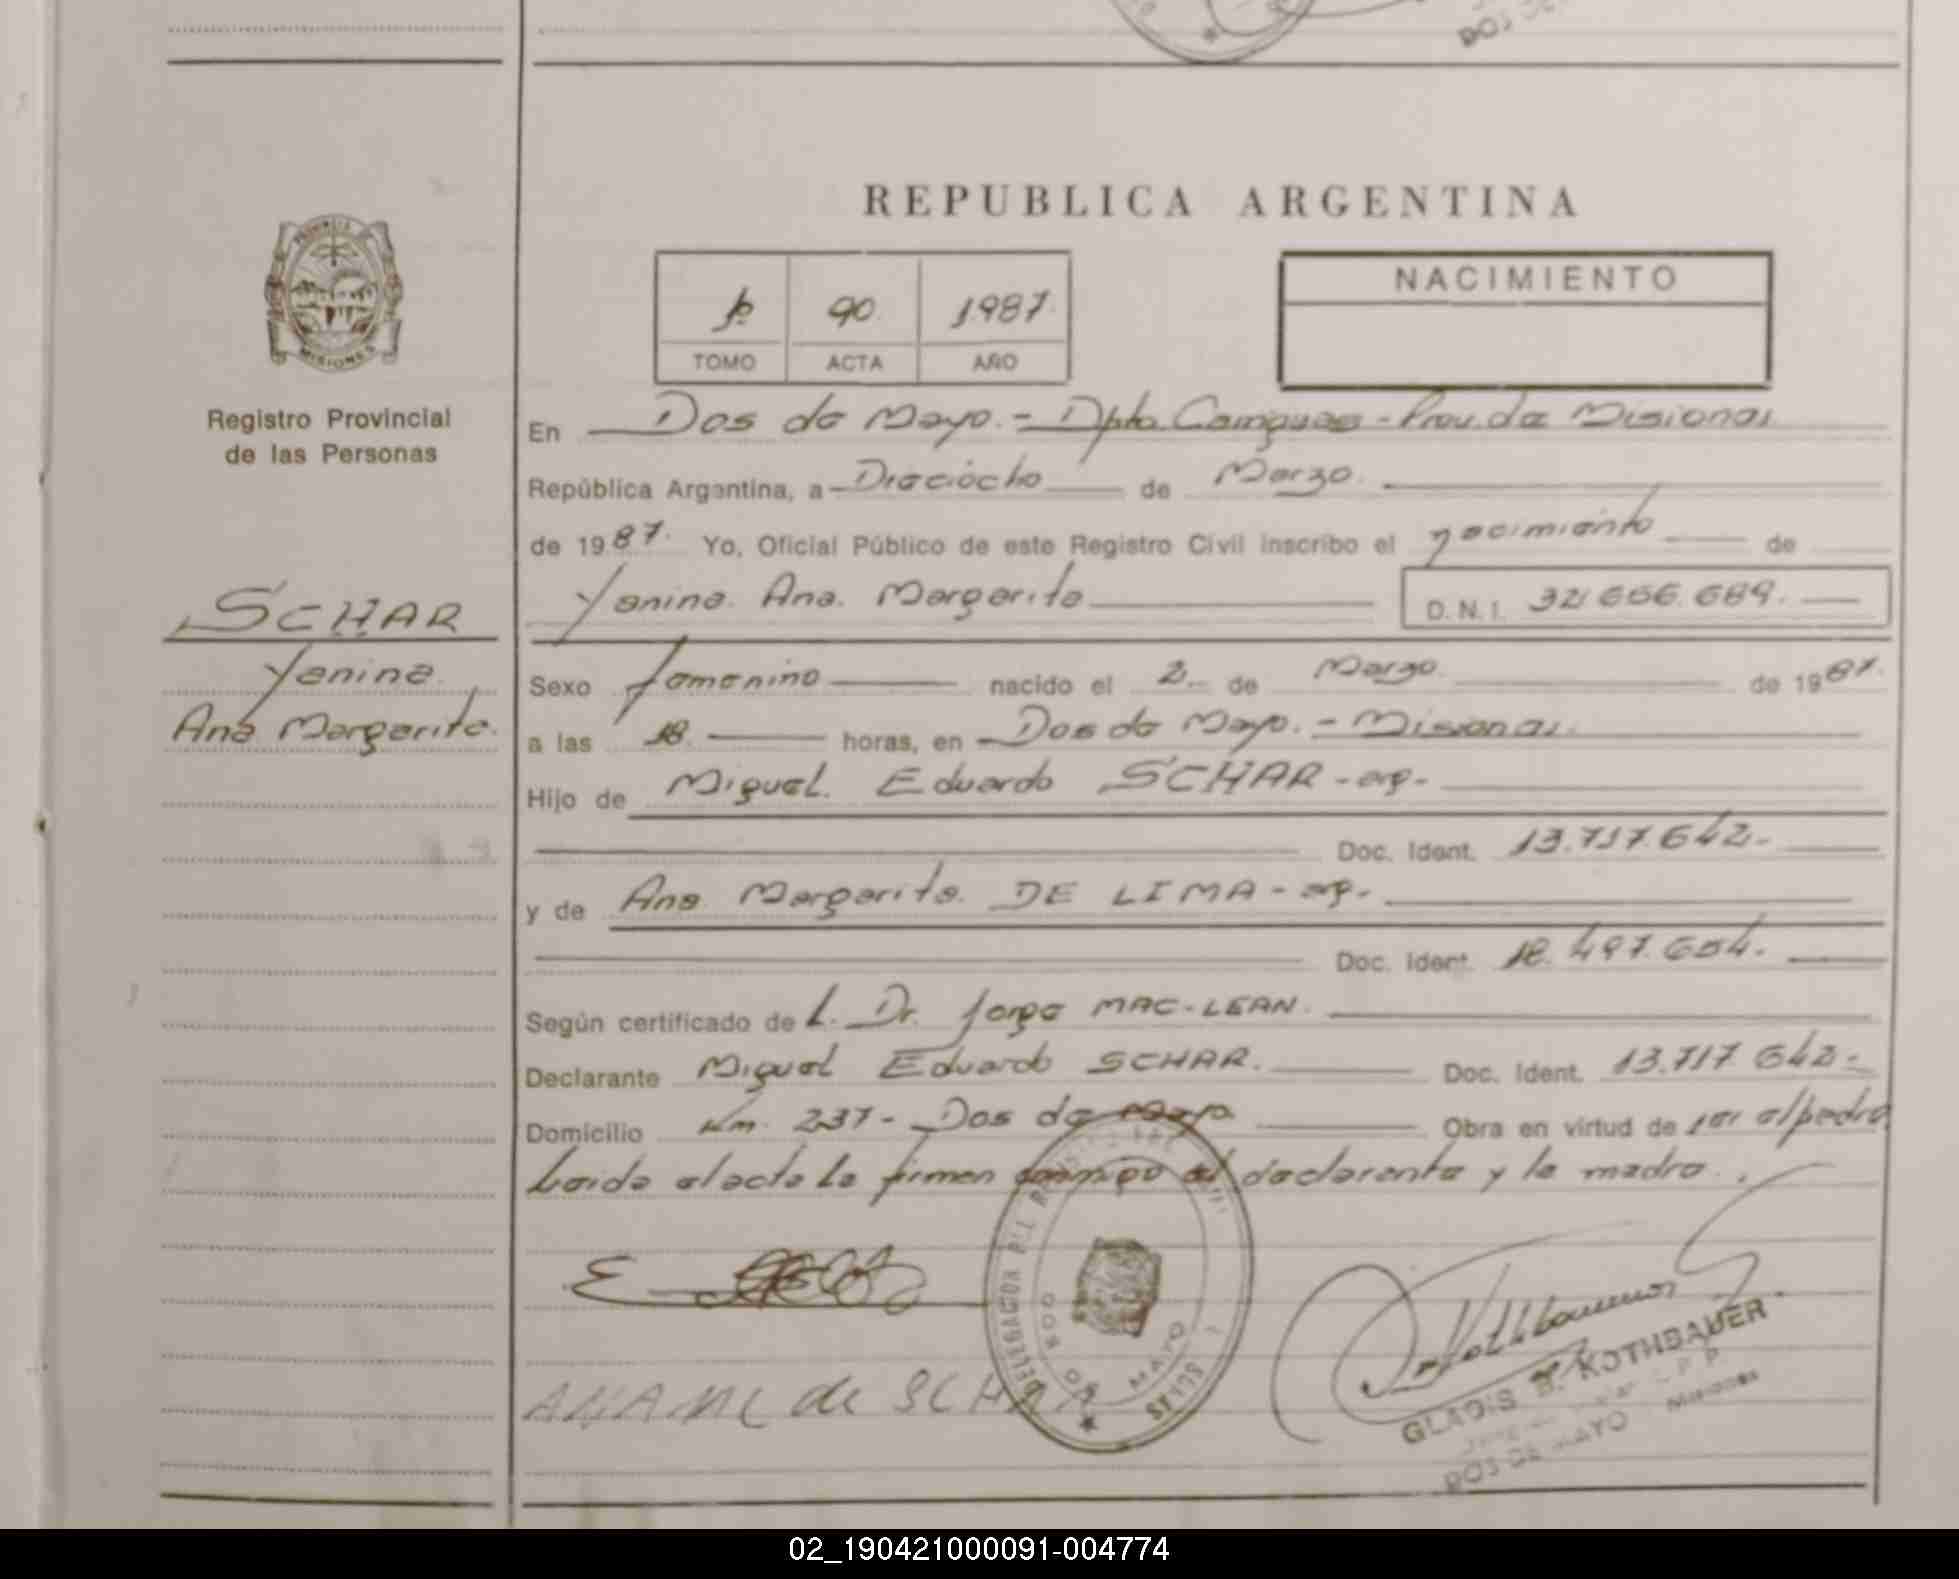 DOS DE
REPUBLICA ARGENTINA
PROVINCIA
MISIONES
Registro Provincial
de las Personas
1º 90. 1987.
TOMO ACTA AÑO
NACIMIENTO
En Dos de Mayo.- Dpto. Cainguas - Prov. de Misiones
República Argentina, a Dieciocho de Marzo.
de 1987. Yo, Oficial Público de este Registro Civil inscribo el nacimiento de
Yanina. Ana. Margarita D.N.I. 32.656.689.
SCHAR
Yanina.
Ana Margarita.
Sexo femenino nacido el 2. de Marzo. de 1987.
a las 18. horas, en Dos de Mayo. - Misiones.
Hijo de Miguel. Eduardo SCHAR - arg.-
Doc. Ident. 13.717.642.-
y de Ana Margarita. DE LIMA - arg.-
Doc. Ident. 18.497.654.-
Según certificado de L. Dr. Jorge MAC-LEAN.
Declarante Miguel Eduardo SCHAR. Doc. Ident. 13.717.642.-
Domicilio Km. 237 - Dos de Mayo Obra en virtud de ser el padre
Leida el acta la firman conmigo el declarante y la madre.
DELEGACION DOS DE MAYO
ANA M L de SCHAR
Kothbauer
GLADIS B. KOTHBAUER
DOS DE MAYO Misiones
02_190421000091-004774